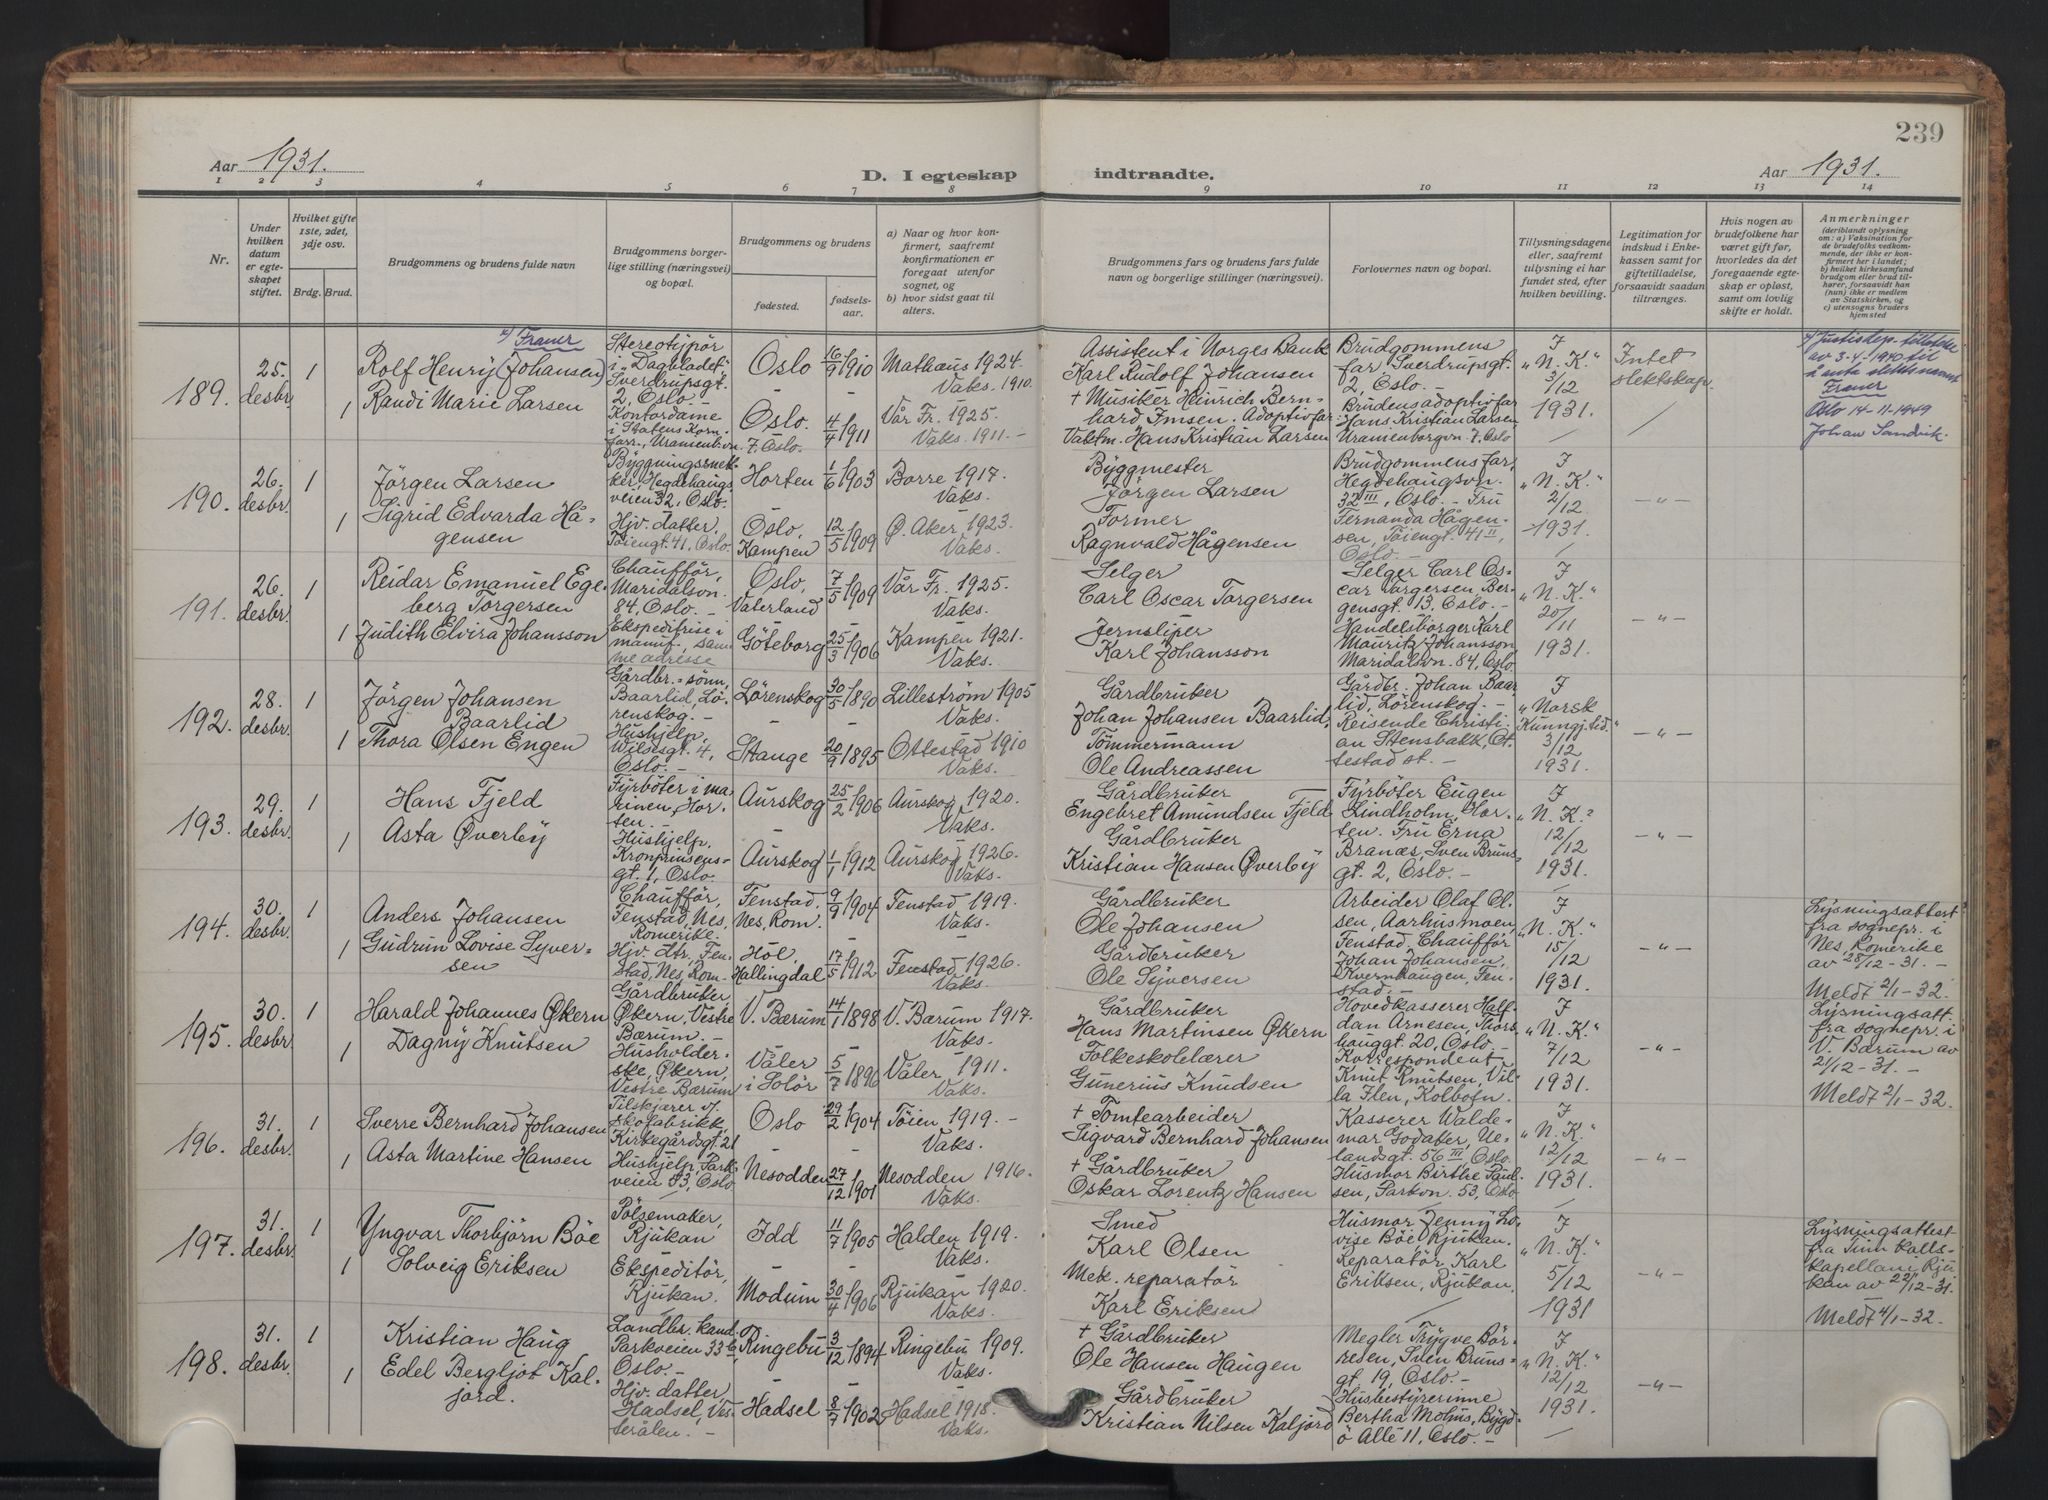 239
Aar 1931.
D. I egteskap indtraadte.
Aar 1931.
1 2 3 4 5 6 7 8 9 10 11 12 13 14
Nr.
Under hvilken datum er egteskapet stiftet.
Hvilket gifte 1ste, 2det, 3dje osv.
Brdg. Brud.
Brudgommens og brudens fulde navn
Brudgommens borgerlige stilling (næringsvei) og bopæl.
Brudgommens og brudens
fødested.
fødselsaar.
a) Naar og hvor konfirmert, saafremt konfirmationen er foregaat utenfor sognet, og
b) hvor sidst gaat til alters.
Brudgommens fars og brudens fars fulde navn og borgerlige stillinger (næringsvei).
Forlovernes navn og bopæl.
Tillysningsdagene eller, saafremt tillysning ei har fundet sted, efter hvilken bevilling.
Legitimation for indskud i Enkekassen samt for giftetilladelse, forsaavidt saadan tiltrænges.
Hvis nogen av brudefolkene har været gift før, hvorledes da det foregaaende egteskap er opløst, samt om lovlig skifte er holdt.
Anmerkninger
(deriblandt oplysning om: a) Vaksination for de brudefolks vedkommende, der ikke er konfirmert her i landet; b) hvilket kirkesamfund brudgom eller brud tilhører, forsaavidt han (hun) ikke er medlem av Statskirken, og c) utensogns bruders hjemsted
189. 25. desbr. 1
Rolf Henry (Johansen) Franer
Stereotypör i „Dagbladet" Sverdrupsgt. 2, Oslo. –
Oslo 16/9 1910
Mathæus 1924. Vaks. 1910.
Assistent i Norges Bank Karl Rudolf Johansen
Brudgommens far, Sverdrupsgt. 2, Oslo. –
I „N. K." 3/12 1931.
Intet slektskap
1 Randi Marie Larsen
Kontordame i Statens Kornforr., Uranienbvn. 7, Oslo.
Oslo. 4/4 1911
Vår Fr. 1925. Vaks. 1911. –
+ Musiker Heinrich Bernhard Imsen. Adoptivfar: Vaktm. Hans Kristian Larsen
Brudens adoptivfar Hans Kristian Larsen Uranienborgvn. 7, Oslo
Justisdep. tillatelse av 3-4-1940 til å anta slektsnavnet Franer
Oslo 14-11-1949
Johan Sandvik.
190. 26. desbr. 1
Jörgen Larsen
Byggningssnekker, Hegdehaugsveien 32, Oslo.
Horten 1/6 1903
Borre 1917. Vaks.
Byggmester Jörgen Larsen
Brudgommens far, Hegdehaugsvn. 32 III, Oslo. – Fru Fernanda Hågensen, Töiengt. 41 II, Oslo. –
I „N. K." 2/12 1931.
–„–
1 Sigrid Edvarda Hågensen
Hjv. datter, Töiengt. 41, Oslo.
Oslo, Kampen 12/5 1909
Ø. Aker 1923. Vaks.
Former Ragnvald Hågensen
191. 26. desbr. 1
Reidar Emanuel Egeberg Torgersen
Chaufför, Maridalsvn. 84, Oslo. –
Oslo, Vaterland 7/5 1909
Vår Fr. 1925. Vaks.
Selger Carl Oscar Torgersen
Selger Carl Oscar Torgersen, Bergensgt. 13, Oslo. – Handelsborger Karl Mauritz Johansson, Maridalsvn. 84, Oslo
I „N. K." 20/11 1931.
–„–
1 Judith Elvira Johansson
Ekspeditrise i manuf., samme adresse
Göteborg 25/3 1906
Kampen 1921. Vaks.
Jernsliper Karl Johansson
192. 28. desbr. 1
Jörgen Johansen Baarlid
Gårdbr.-sönn, Baarlid, Lörenskog. –
Lörenskog 30/5 1890
Lilleström 1905 Vaks.
Gårdbruker Johan Johansen Baarlid
Gårdbr. Johan Baarlid, Lörenskog. – Reisende Christian Stensbakk, Ottestad st. –
I „Norsk Kunngj. tid." 3/12 1931.
–„–
1 Thora Olsen Engen
Hushjelp, Wilsesgt. 4, Oslo. –
Stange 20/9 1895
Ottestad 1910 Vaks.
Tömmermann Ole Andreassen
193. 29. desbr. 1
Hans Fjeld
Fyrböter i marinen, Horten. –
Aurskog 25/2 1906
Aurskog 1920. Vaks.
Gårdbruker Engebret Amundsen Fjeld
Fyrböter Eugen Lindholm, Horten. Fru Erna Branæs, Sven Brunsgt. 2, Oslo. –
I „N. K." 12/12 1931.
–„–
1 Asta Øverby
Hushjelp, Kronprinsensgt. 1, Oslo.
Aurskog 1/1 1912
Aurskog 1926. Vaks.
Gårdbruker Kristian Hansen Øverby
194. 30. desbr. 1
Anders Johansen
Chaufför, Fenstad, Nes, Romerike.
Fenstad, Nes, Rom. 9/9 1904
Fenstad 1919. Vaks.
Gårdbruker Ole Johansen
Arbeider Olaf Olsen, Aarhusmoen, Fenstad. Chaufför Johan Johansen, Kvernhaugen, Fenstad. –
I „N. K." 15/12 1931.
–„–
Lysningsattest fra sognepr. i Nes, Romerike av 28/12-31. –
Meldt 2/1-32.
1 Gudrun Lovise Syversen
Hjv. dtr., Fenstad, Nes, Rom.
Hol, Hallingdal 17/5 1912
Fenstad 1926. Vaks.
Gårdbruker Ole Syversen
195. 30. desbr. 1
Harald Johannes Økern
Gårdbruker, Økern, Vestre Bærum. –
V. Bærum 14/1 1898
V. Bærum 1917. Vaks.
Gårdbruker Hans Martinsen Økern
Hovedkasserer Halfdan Arnesen, Thorshauggt. 20, Oslo. – Korrespondent Knut Knutsen, Villa Flen, Kolbotn.
I „N. K." 7/12 1931.
–„–
Lysningsatt. fra sognepr. i V. Bærum av 21/12-31. –
Meldt 2/1-32.
1 Dagny Knutsen
Husholderske, Økern, Vestre Bærum
Våler i Solör 5/7 1896
Våler 1911. Vaks.
Folkeskolelærer Gunerius Knudsen
196. 31. desbr. 1
Sverre Bernhard Johansen
Tilskjærer v. skofabrikk, Kirkegårdsgt. 21
Oslo 29/2 1904
Töien 1919. – Vaks.
+ Tomtearbeider Sigvard Bernhard Johansen
Kasserer Waldemar Godater, Uelandsgt. 56 III, Oslo. Husmor Birthe Paulsen, Parkvn. 53, Oslo
I „N. K." 12/12 1931.
–„–
1 Asta Martine Hansen
Hushjelp, Parkveien 53, Oslo
Nesodden 27/12 1901
Nesodden 1916. Vaks.
+ Gårdbruker Oskar Lorentz Hansen
197. 31. desbr. 1
Yngvar Thorbjörn Böe
Pölsemaker, Rjukan
Idd 11/7 1905
Halden 1919. Vaks.
Smed Karl Olsen
Husmor Jenny Lovise Böe, Rjukan. Reparatör Karl Eriksen, Rjukan.
I „N. K." 5/12 1931
–„–
Lysningsattest fra Tinn kallskapellan, Rjukan av 22/12-31.
Meldt 4/1-32.
1 Solveig Eriksen
Ekspeditör, Rjukan.
Modum 30/4 1906
Rjukan 1920. Vaks.
Mek. reparatör Karl Eriksen
198. 31. desbr. 1
Kristian Haug
Landbr. kand. Parkveien 33 b, Oslo. –
Ringebu 3/12 1894
Ringebu 1909. Vaks.
+ Gårdbruker Ole Hansen Haugen
Megler Trygve Börresen, Sven Brunsgt. 19, Oslo. – Husbestyrerinne Bertha Mohus, Bygdö Allé 11, Oslo. –
I „N. K." 12/12 1931.
–„–
1 Edel Bergljot Kaljord.
Hjv. datter Hadsel, Vesterålen. –
Hadsel 8/7 1902
Hadsel 1918. Vaks.
Gårdbruker Kristian Nilsen Kaljord